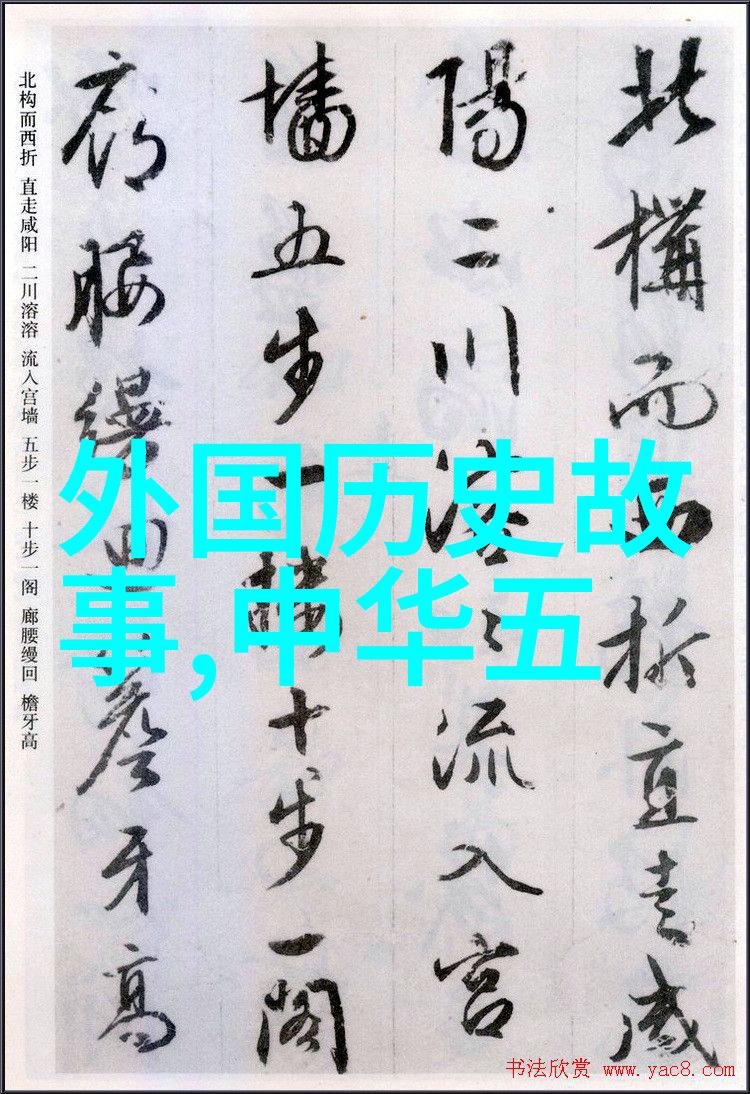 北構而西折直走咸
陽二川溶々流入宮
墻五步一樓十步一閣
廊腰縵回簷牙高
北构而西折 直走咸阳 二川溶溶 流入宫墙 五步一楼 十步一阁 廊腰缦回 檐牙高
外国历史故
事,中华五
书法欣赏 www.yac8.com